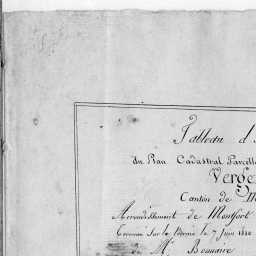 Tableau d
du Plan Cadastral Parcell
Verge
Canton de M
Arrondissement de Montfort
Terminé sur le Terrein le 7 Juin 18
de Mr Bonnaire